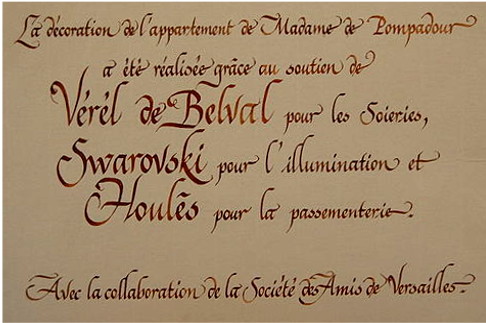 La décoration de l'appartement de Madame de Pompadour
a été réalisée grâce au soutien de
Vérél de Belval pour les Soieries,
Swarovski pour l'illumination et
Houlēs pour la passementerie.
Avec la collaboration de la Société des Amis de Versailles.